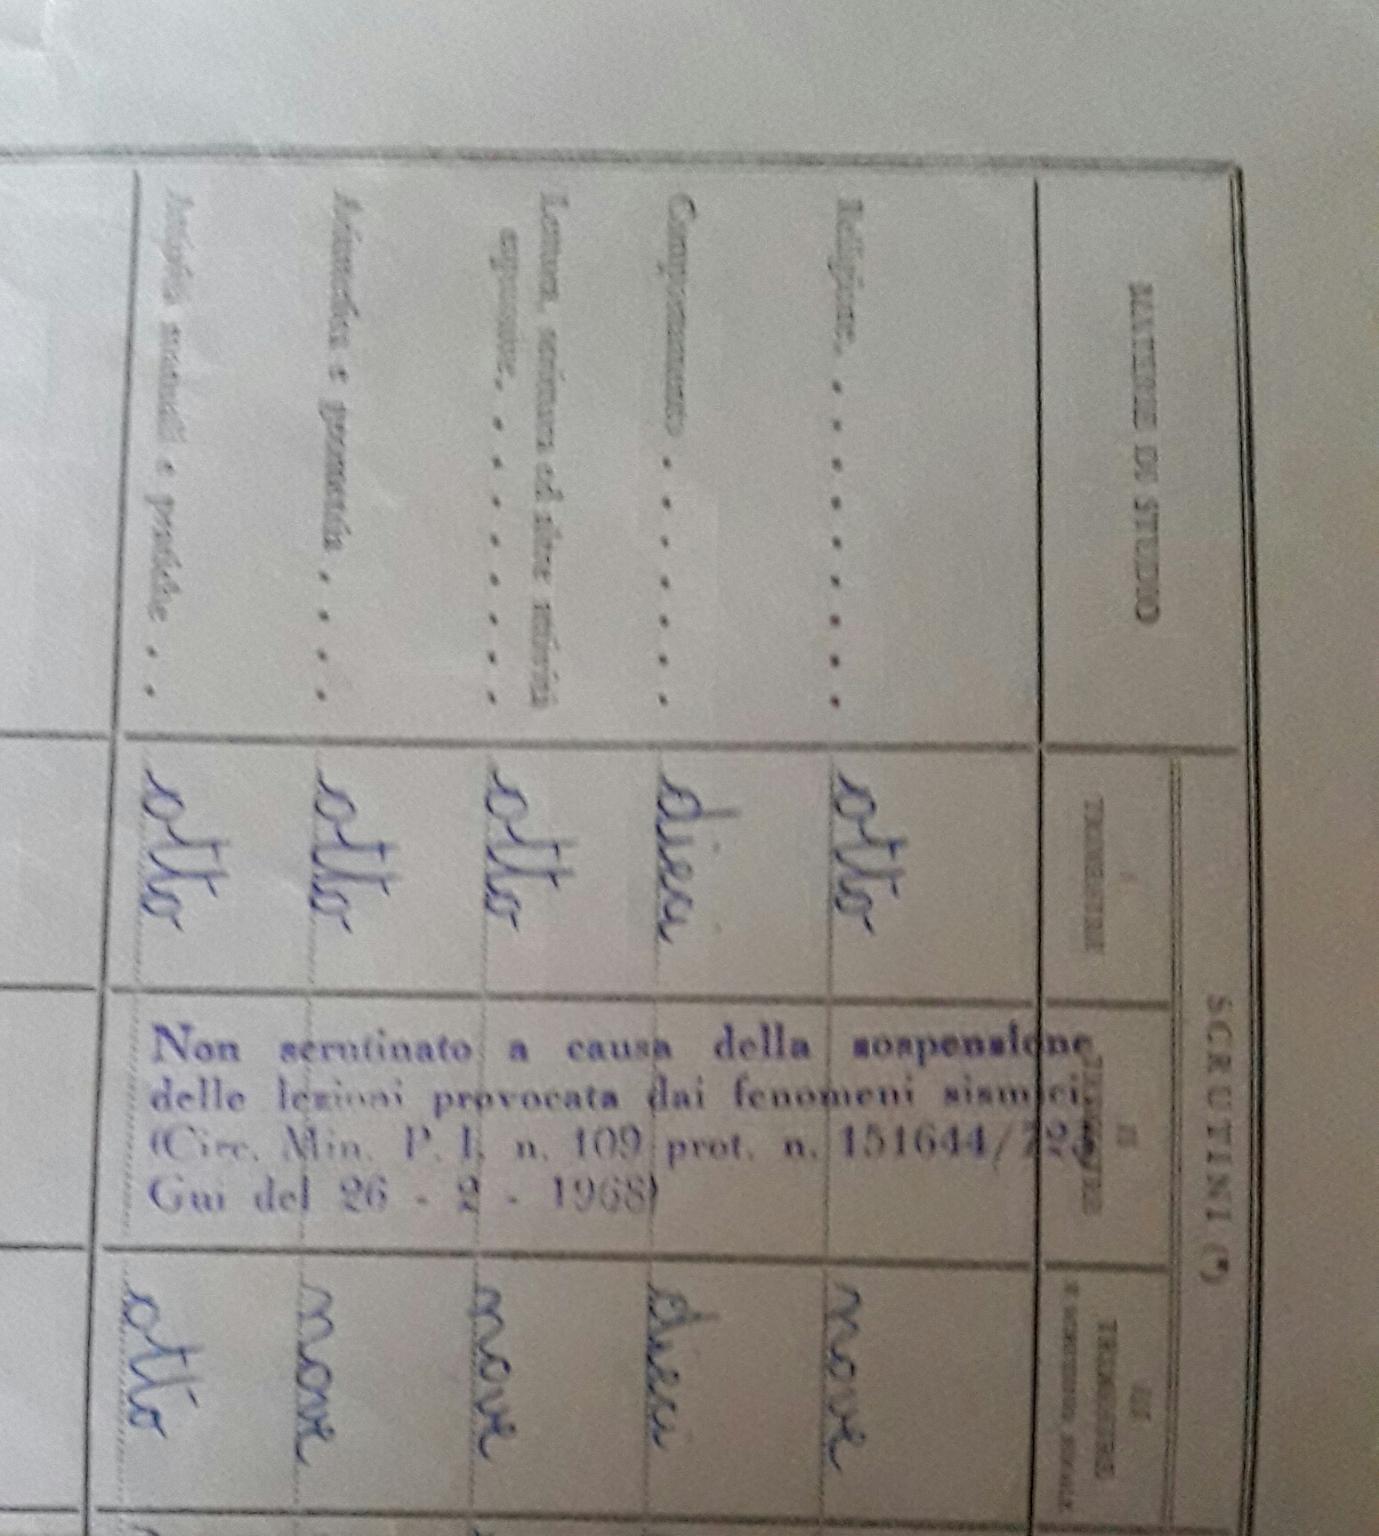 MATERIE DI STUDIO
SCRUTINI (*)
I
TRIMESTRE
II
TRIMESTRE
III
TRIMESTRE
E SCRUTINIO FINALE
Religione. . . . . . . . . . otto nove
Comportamento . . . . . . . dieci dieci
Lettura, scrittura ed altre attività
espressive. . . . . . . . . otto nove
Aritmetica e geometria . . . . otto nove
Attività manuali e pratiche . . otto otto
Non scrutinato a causa della sospensione
delle lezioni provocata dai fenomeni sismici.
(Circ. Min. P. I. n. 109 prot. n. 151644/72,
Gui del 26 - 2 - 1968)